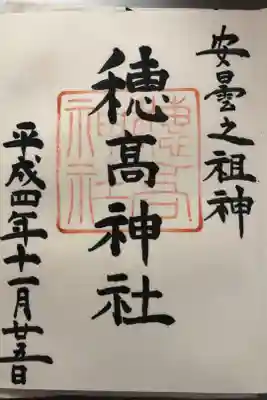 安曇之祖神
穂髙神社
平成四年十一月廿五日
穂髙神社